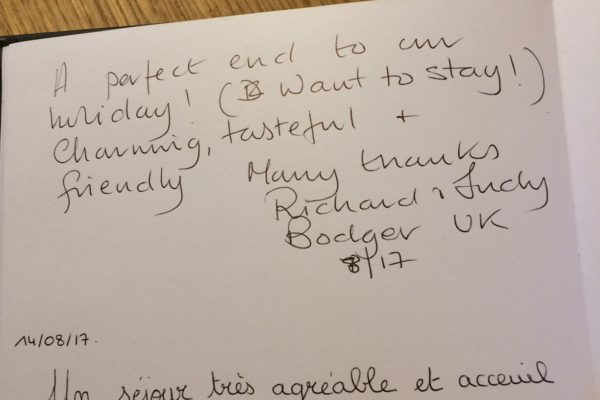 A perfect end to our
holiday! (I Want to stay!)
Charming, tasteful +
friendly Many thanks
Richard & Judy
Bodger UK
8/17
14/08/17.
Un séjour très agréable et acceuil